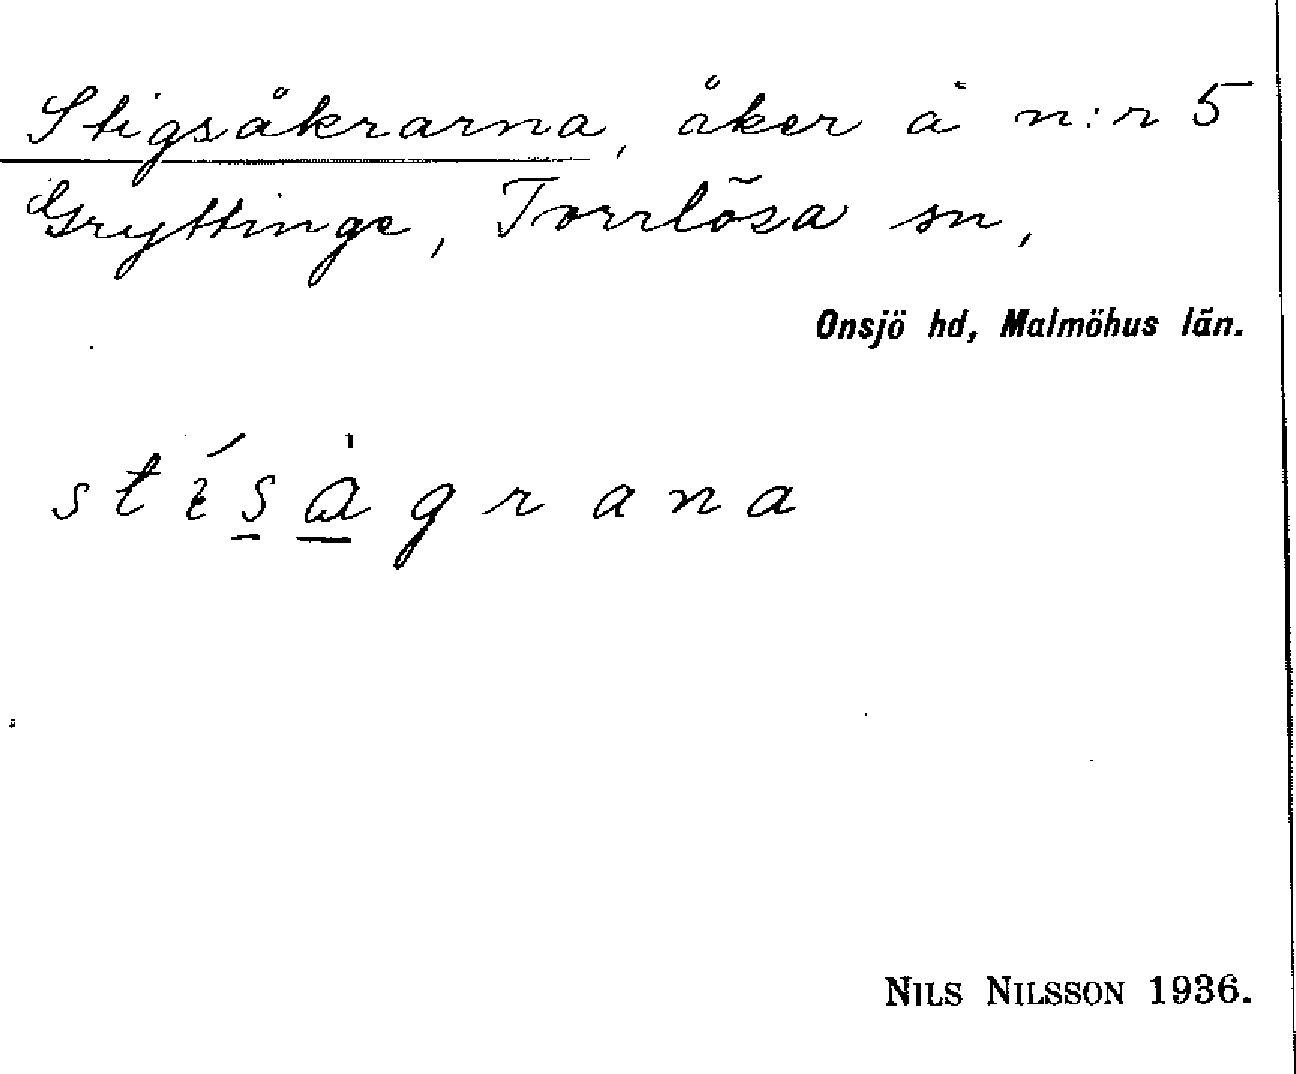 Stigsåkrarna, åker å n:r 5
Gryttinge, Torrlösa sn,
Onsjö hd, Malmöhus län.
NILS NILSSON 1936.